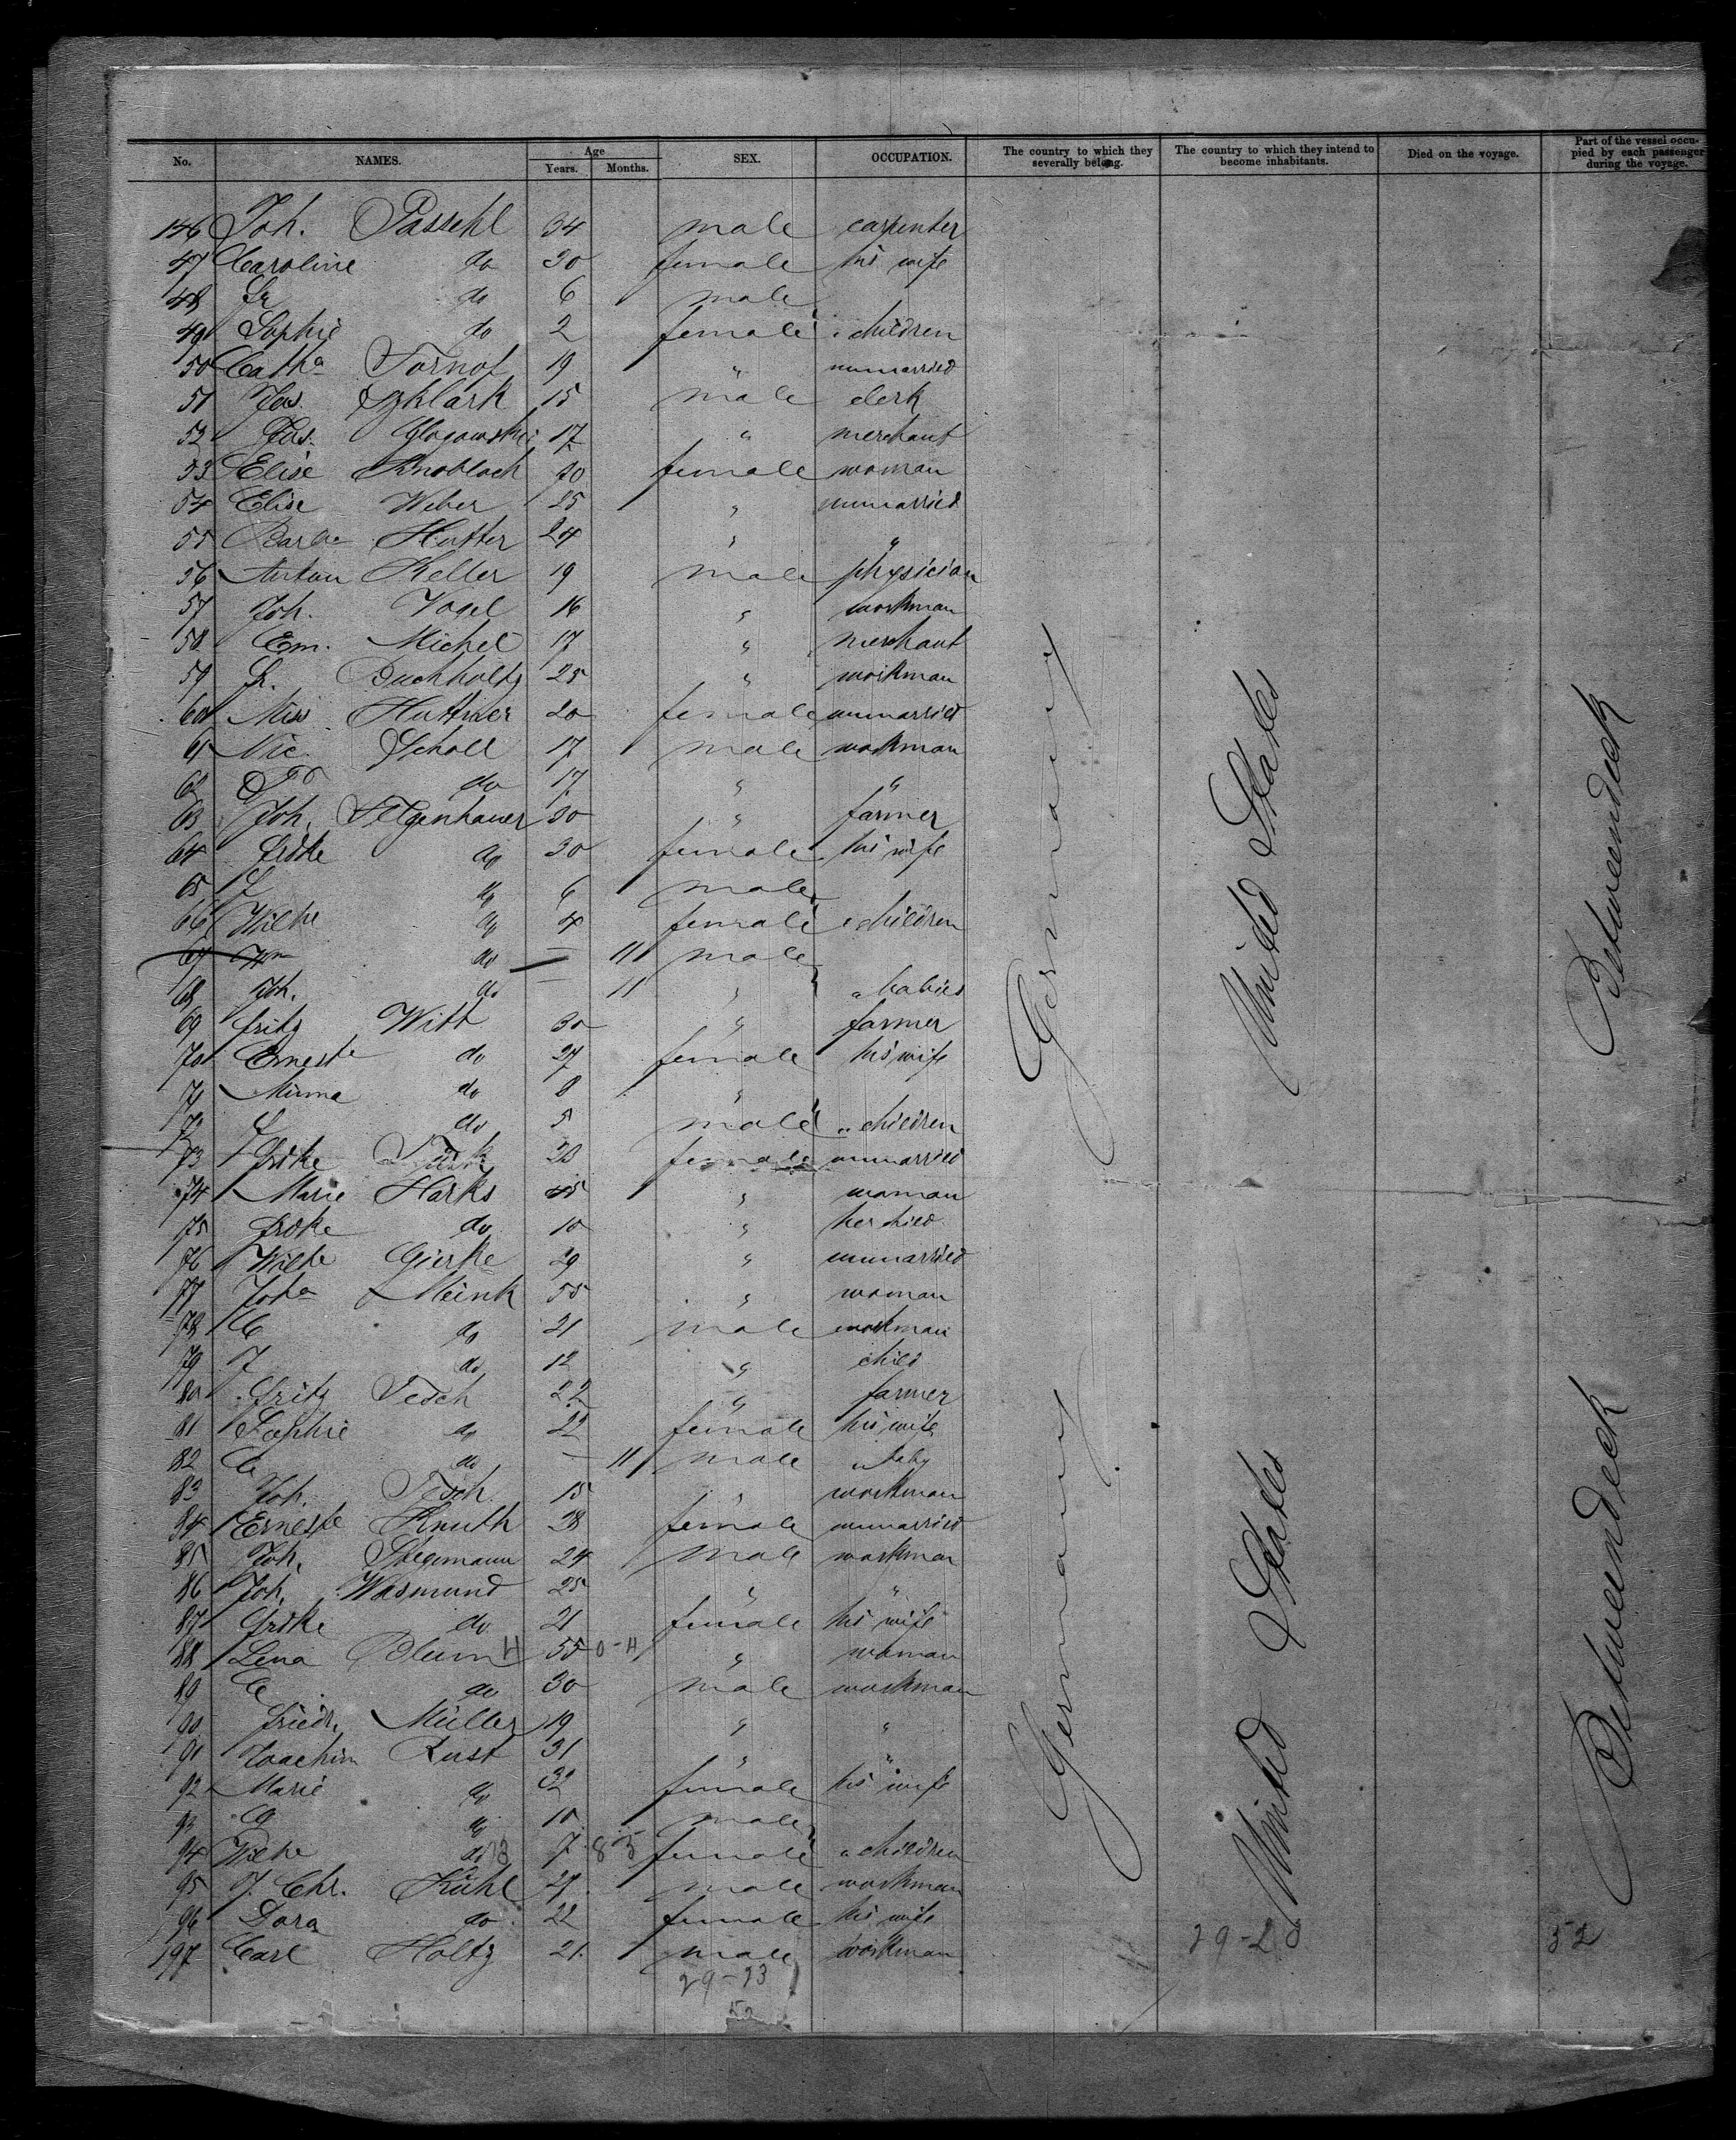 No. NAMES. Age Years. Months. SEX. OCCUPATION. The country to which they severally belong. The country to which they intend to become inhabitants. Died on the voyage. Part of the vessel occupied by each passenger during the voyage.
146 Joh. Passehl 34 male carpenter
47 Caroline do 30 female his wife
48 Fr do 6 male
49 Sophie do 2 female " children
50 Cath a Tornof 19 " unmarried
51 Jos. Szklark 15 male clerk
52 Glogowski 17 " merchant
53 Elise Knobloch 70 female woman
54 Elise Weber 25 " unmarried
55 Barba Hutter 24 " "
56 Anton Keller 19 male physician
57 Joh. Vogel 16 " workman
58 Em. Michel 17 " merchant
59 Fr. Buchholtz 25 " workman
60 Miss Huttner 20 female unmarried
61 Nic. Scholl 17 male workman
62 do 17 " "
63 Joh. Felgenhauer 30 " farmer
64 Frdke do 30 female his wife
65 do 6 male
66 Wilhe do 4 female " children
67 Wm do — 11 male
68 Joh. do — 11 " " babies
69 Fritz Witt 30 " farmer
70 Erneste do 27 female his wife
71 Minna do 8 "
72 do 5 male " children
73 Frdke 28 female unmarried
74 Marie Harks 45 " woman
75 Frdke do 10 " her child
76 Wilhe Gierke 29 " unmarried
77 Joha Meink 55 " woman
78 C do 21 male workman
79 J do 12 " child
80 Fritz Tesch 22 " farmer
81 Sophie do 22 female his wife
82 C do — 11 male " baby
83 Joh. Tesch 15 " workman
84 Erneste Knuth 28 female unmarried
85 Joh. Stegemann 24 male workman
86 Joh. Wasmund 25 " "
87 Frdke do 21 female his wife
88 Lena Blum H 55 0-H " woman
89 C do 30 male workman
90 Friedr. Müller 19 " "
91 Joachim Rust 31 " "
92 Marie do 32 female his wife
93 do 10 male
94 Wilhe do 7 8-5 female " children
95 J. Chr. Kühl 27 male workman
96 Dora do 22 female his wife
197 Carl Holtz 21 male workman
29-23
52
Germany
Germany
United States
United States
29-2
Betweendeck
Betweendeck
52